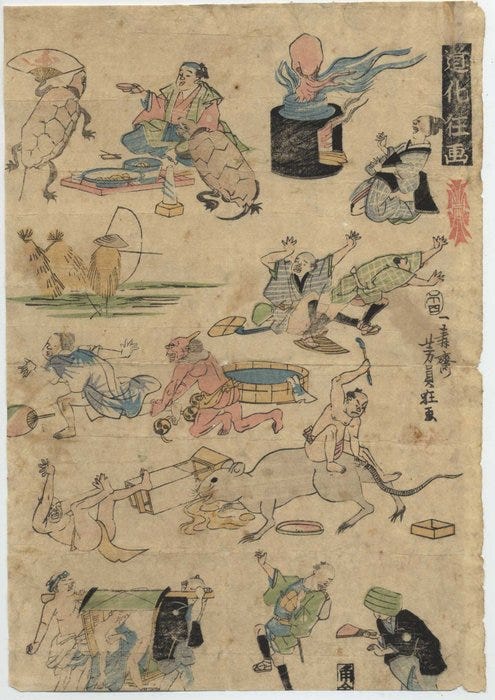 道化狂画
一壽齋
芳員狂画